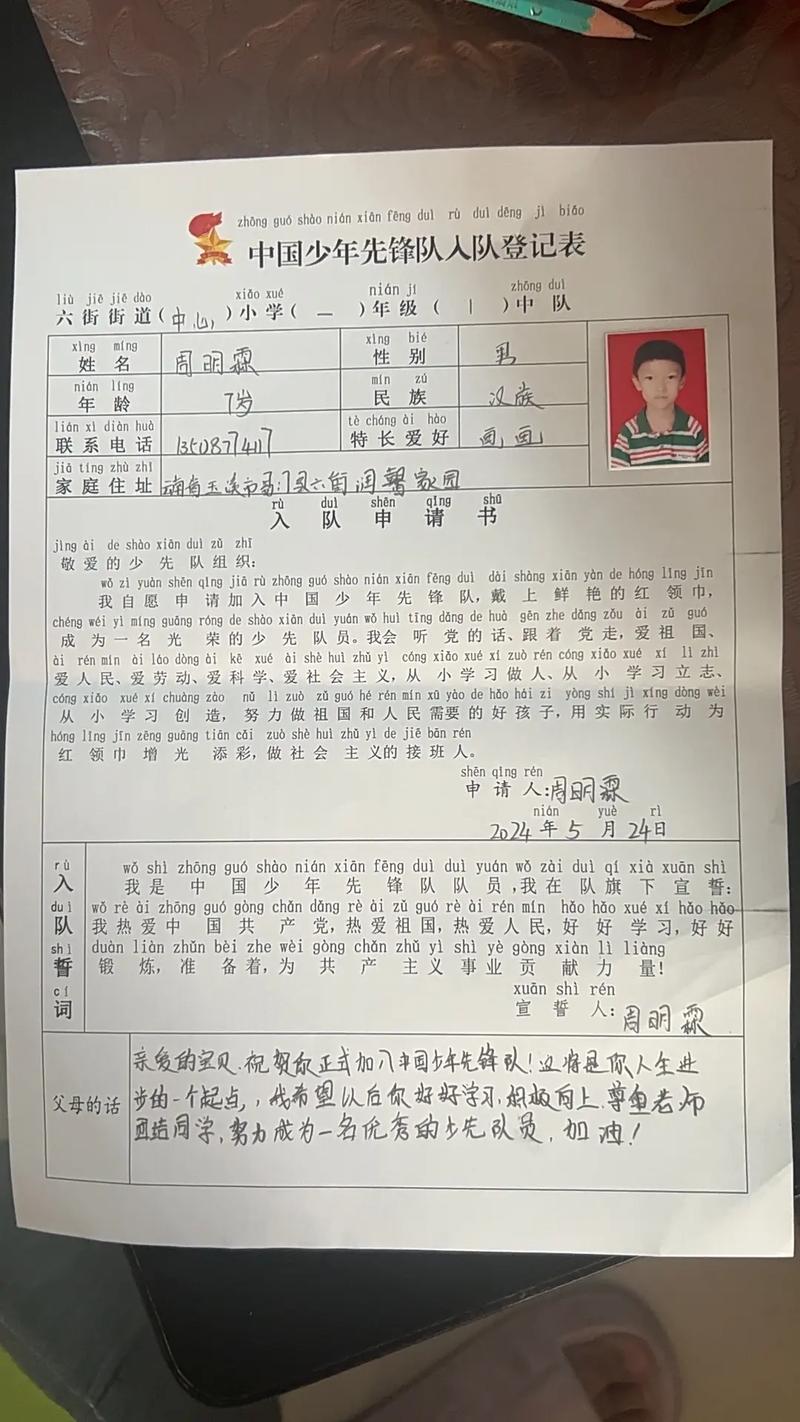 zhōng guó shào nián xiān fēng duì rù duì dēng jì biǎo
中国少年先锋队入队登记表
liù jiē jiē dào xiǎo xué nián jí zhōng duì
六街街道(中心)小学(一)年级(1)中队
xìng míng xìng bié
姓名 周明霖 性别 男
nián líng mín zú
年龄 7岁 民族 汉族
lián xì diàn huà tè cháng ài hào
联系电话 13508774117 特长爱好 画画
jiā tíng zhù zhǐ
家庭住址 南省玉溪市易门县六街润馨家园
rù duì shēn qǐng shū
入队申请书
jìng ài de shào xiān duì zǔ zhī
敬爱的少先队组织:
wǒ zì yuàn shēn qǐng jiā rù zhōng guó shào nián xiān fēng duì dài shàng xiān yàn de hóng lǐng jīn
我自愿申请加入中国少年先锋队,戴上鲜艳的红领巾,
chéng wéi yì míng guāng róng de shào xiān duì yuán wǒ huì tīng dǎng de huà gēn zhe dǎng zǒu ài zǔ guó
成为一名光荣的少先队员。我会听党的话、跟着党走,爱祖国、
ài rén mín ài láo dòng ài kē xué ài shè huì zhǔ yì cóng xiǎo xué xí zuò rén cóng xiǎo xué xí lì zhì
爱人民、爱劳动、爱科学、爱社会主义,从小学习做人、从小学习立志、
cóng xiǎo xué xí chuàng zào nǔ lì zuò zǔ guó hé rén mín xū yào de hǎo hái zi yòng shí jì xíng dòng wèi
从小学习创造,努力做祖国和人民需要的好孩子,用实际行动为
hóng lǐng jīn zēng guāng tiān cǎi zuò shè huì zhǔ yì de jiē bān rén
红领巾增光添彩,做社会主义的接班人。
shēn qǐng rén
申请人:周明霖
nián yuè rì
2024年5月24日
rù duì shì cí
入队誓词
wǒ shì zhōng guó shào nián xiān fēng duì duì yuán wǒ zài duì qí xià xuān shì
我是中国少年先锋队队员,我在队旗下宣誓:
wǒ rè ài zhōng guó gòng chǎn dǎng rè ài zǔ guó rè ài rén mín hǎo hǎo xué xí hǎo hǎo
我热爱中国共产党,热爱祖国,热爱人民,好好学习,好好
duàn liàn zhǔn bèi zhe wèi gòng chǎn zhǔ yì shì yè gòng xiàn lì liàng
锻炼,准备着,为共产主义事业贡献力量!
xuān shì rén
宣誓人:周明霖
父母的话
亲爱的宝贝.祝贺你正式加入中国少年先锋队!这将是你人生进
步的一个起点,我希望以后你好好学习.积极向上.尊重老师
团结同学,努力成为一名优秀的少先队员,加油!